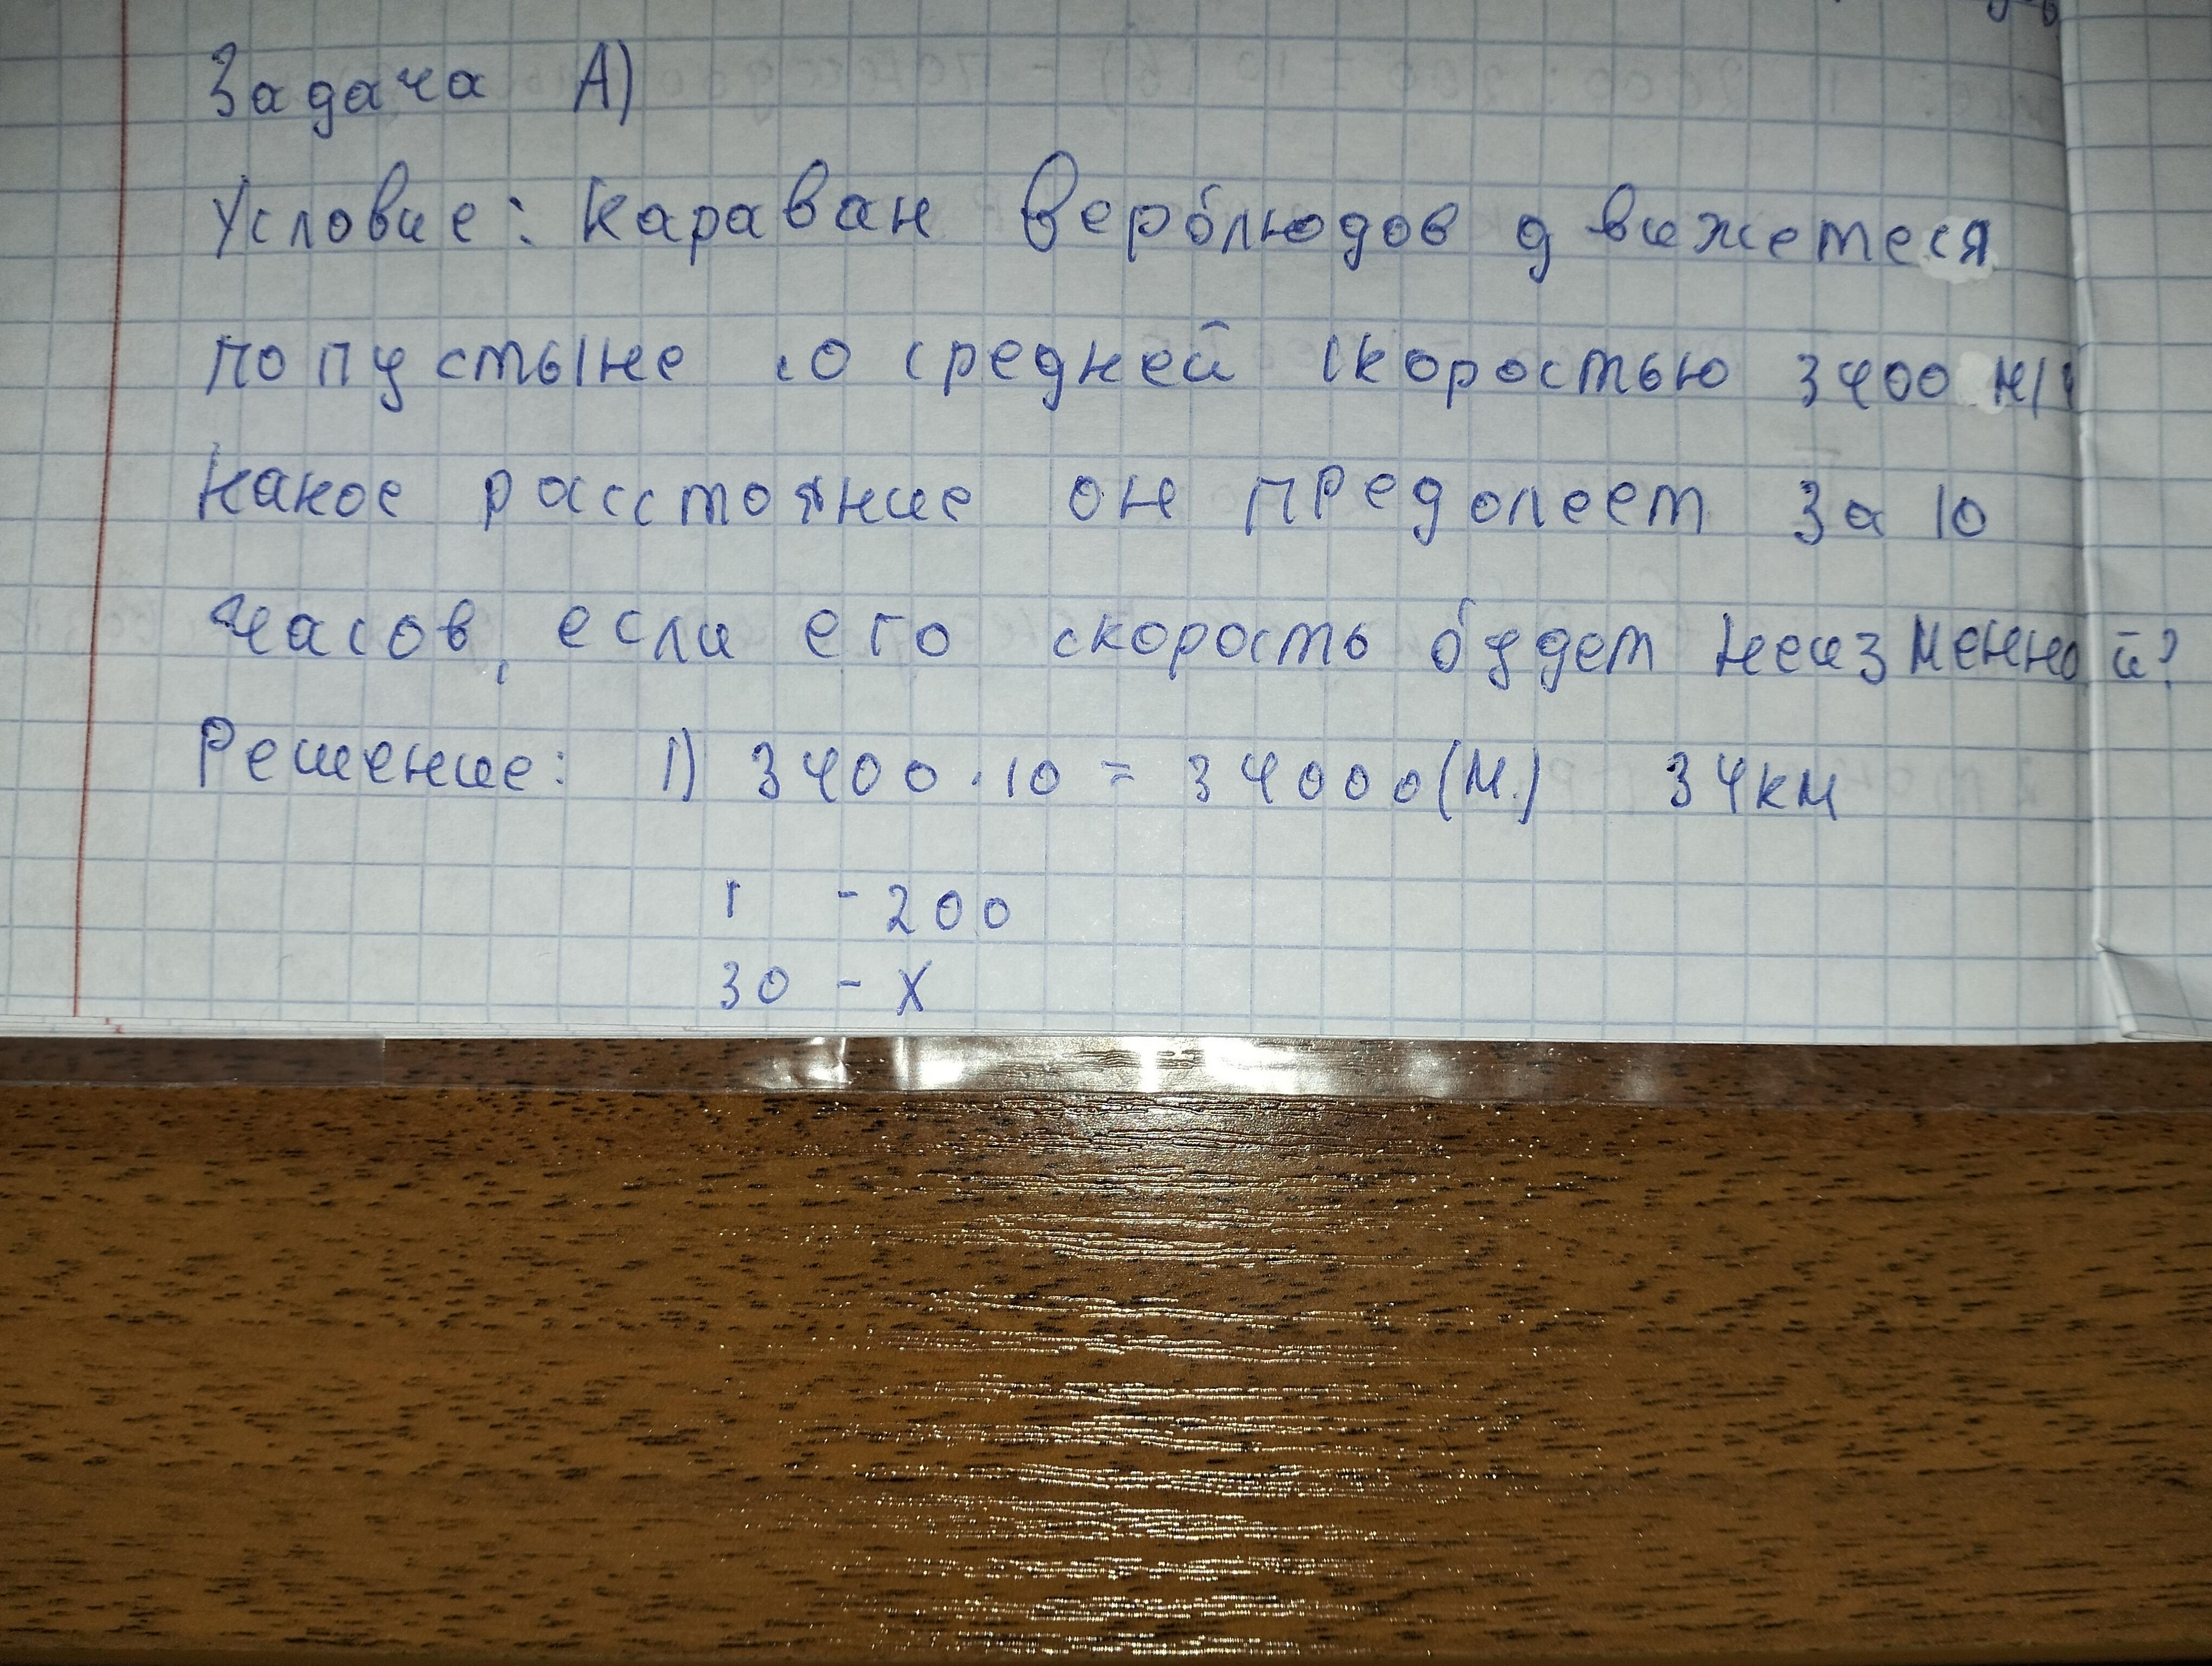 Задача А)
Условие: Караван верблюдов движетеся
по пустыне со средней скоростью 3400 м/ч
какое расстояние он предолеет за 10
часов, если его скорость будет неизменной?
Решение: 1) 3400 · 10 = 34000 (м.) 34км
1 - 200
30 - х